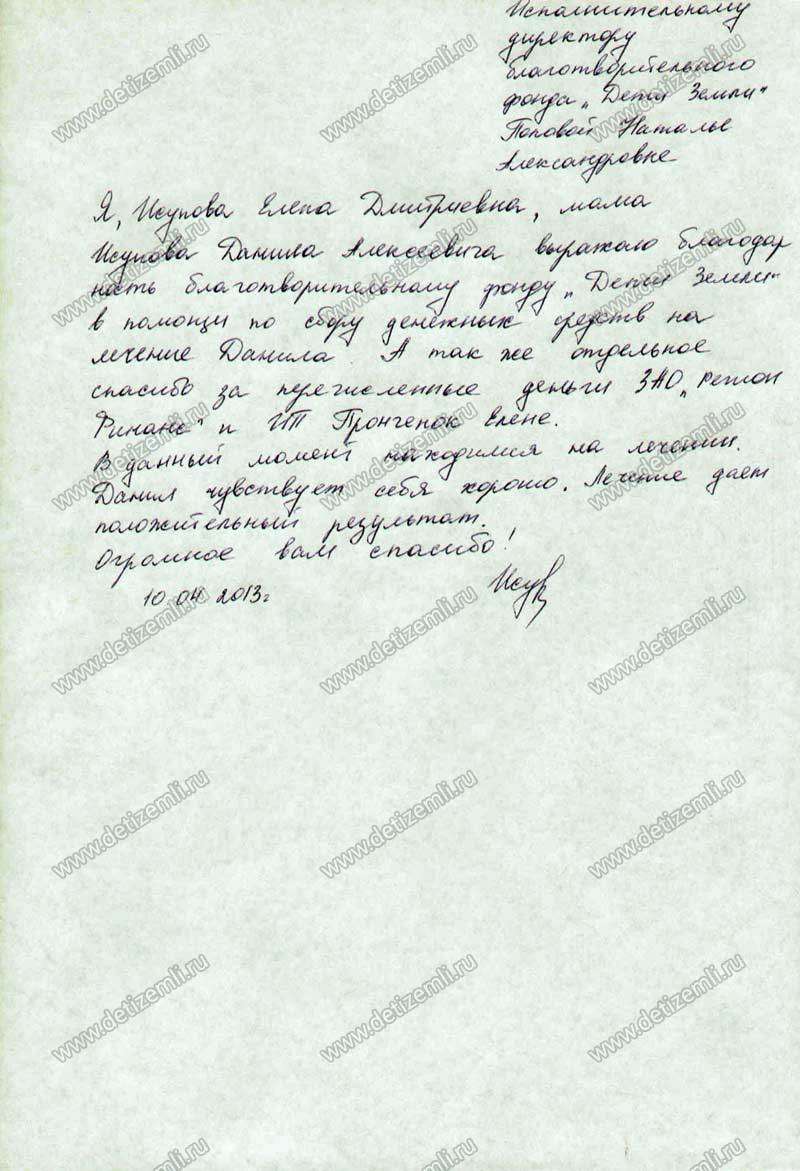 Исполнительному
директору
благотворительного
фонда „Дети Земли“
Поповой Наталье
Александровне
Я, Исупова Елена Дмитриевна, мама
Исупова Данила Алексеевича выражаю благодар
ность благотворительному фонду „Дети Земли“
в помощи по сбору денежных средств на
лечение Данила. А так же отдельное
спасибо за перечисленные деньги ЗАО „Регион
Финанс“ и ИП Пронченок Елене.
В данный момент находимся на лечении.
Данил чувствует себя хорошо. Лечение дает
положительный результат.
Огромное вам спасибо!
10.04 2013г
www.detizemli.ru